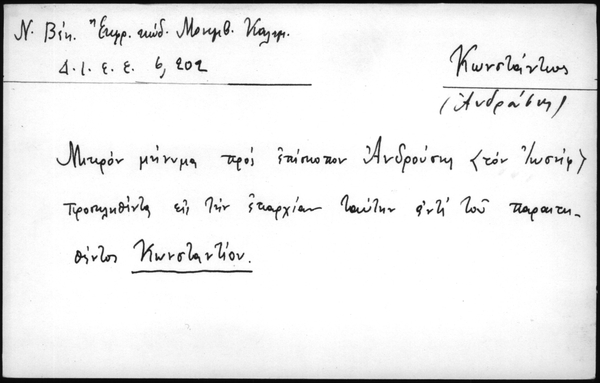 Ν. Βέη. Ἡ Ἐκφρ. κώδ. Μονεμβ. Καλαμ.
Δ. Ι. Ε. Ε. 6, 202
Κωνστάντιος
(Ἀνδρούσης)
Μικρὸν μήνυμα πρὸς ἐπίσκοπον Ἀνδρούσης <τὸν Ἰωσήφ>
προσκληθέντα εἰς τὴν ἐπαρχίαν ταύτην ἀντὶ τοῦ παραιτη-
θέντος Κωνσταντίου.